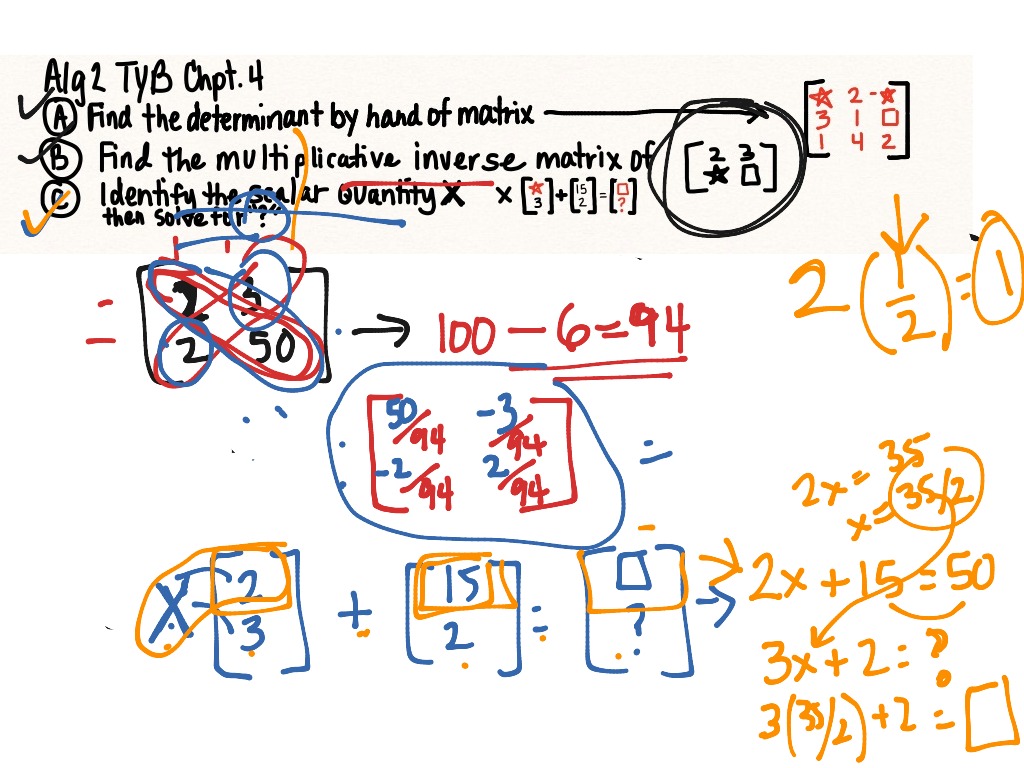 Alg2 TYB Chpt. 4
Ⓐ Find the determinant by hand of matrix
☆ 2 -☆
3 1 □
1 4 2
Ⓑ Find the multiplicative inverse matrix of
2 3
☆ □
Ⓒ Identify the scalar quantity X x [☆ 3] + [15 2] = [□ ?]
then solve for "?"
2 (1/2) = 1
= 2 3
2 50
→ 100 - 6 = 94
50/94 -3/94
-2/94 2/94
=
2x = 35
x = 35/2
X [2 3] + [15 2] = [□ ?]
2x + 15 = 50
3x + 2 = ?
3(35/2) + 2 = □